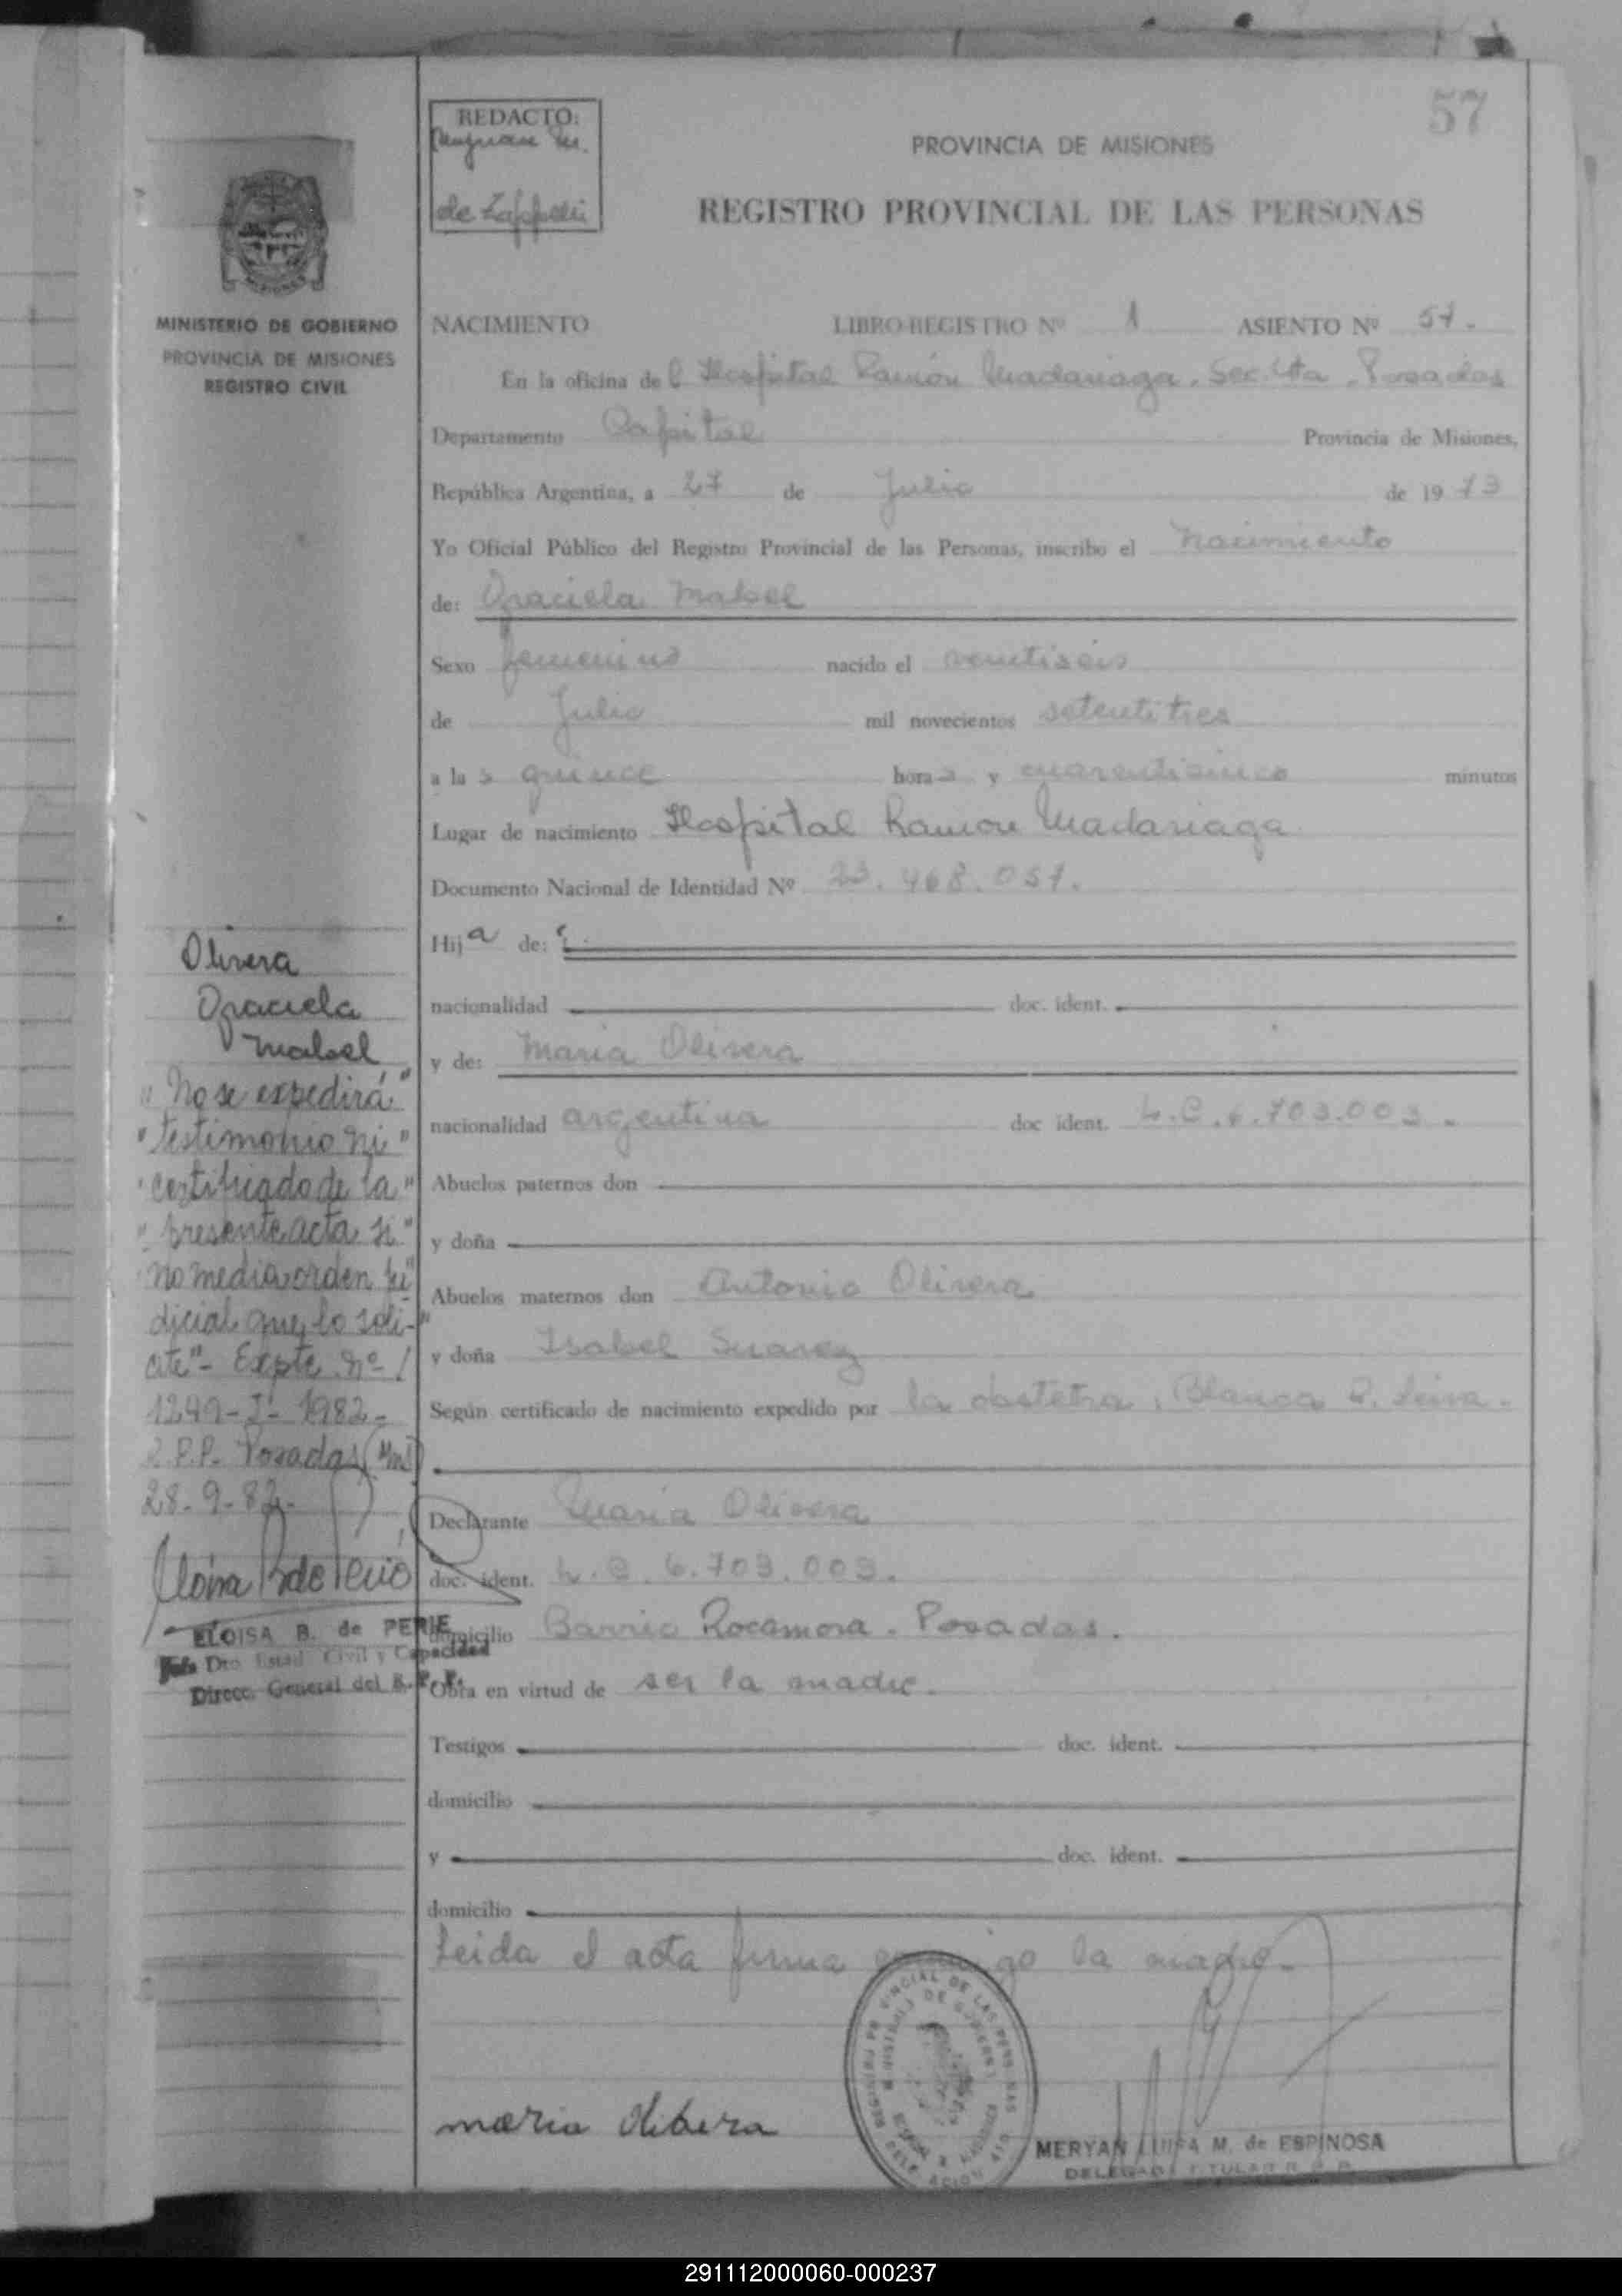 57
REDACTO:
de Zappelli
PROVINCIA DE MISIONES
REGISTRO PROVINCIAL DE LAS PERSONAS
MINISTERIO DE GOBIERNO
PROVINCIA DE MISIONES
REGISTRO CIVIL
NACIMIENTO LIBRO-REGISTRO Nº 1 ASIENTO Nº 57.
En la oficina del Hospital Ramón Madariaga. Sec. 4ta. Posadas
Departamento Capital Provincia de Misiones,
República Argentina, a 27 de Julio de 1973
Yo Oficial Público del Registro Provincial de las Personas, inscribo el nacimiento
de: Graciela Mabel
Sexo femenino nacido el veintiseis
de Julio mil novecientos setentitres
a las quince horas y cuarenticinco minutos
Lugar de nacimiento Hospital Ramon Madariaga
Documento Nacional de Identidad Nº 23.468.057.
Hija de:
nacionalidad doc. ident.
y de: Maria Olivera
nacionalidad argentina doc ident. L.C. 6.703.003.
Abuelos paternos don
y doña
Abuelos maternos don Antonio Olivera
y doña Isabel Suarez
Según certificado de nacimiento expedido por la obstetra, Blanca R. Leiva.
Declarante Maria Olivera
doc. ident. L.C. 6.703.003.
domicilio Barrio Rocamora. Posadas.
Obra en virtud de ser la madre.
Testigos doc. ident.
domicilio
y doc. ident.
domicilio
Leida el acta firma conmigo la madre.
maria Olibera
MERYAN LUISA M. de ESPINOSA
DELEGADA TITULAR R. P. P.
Olivera
Graciela
Mabel
"No se expedirá"
"testimonio ni"
"certificado de la"
"presente acta si"
no media orden ju"
dicial que lo soli-"
cite"- Expte. nº /
1249-I-1982-
R.P.P. Posadas (Mnes)
28-9-82-
ELOISA B. de PERIE
Jefe Dto Estad Civil y Capacidad
Direcc. General del R. P. P.
291112000060-000237